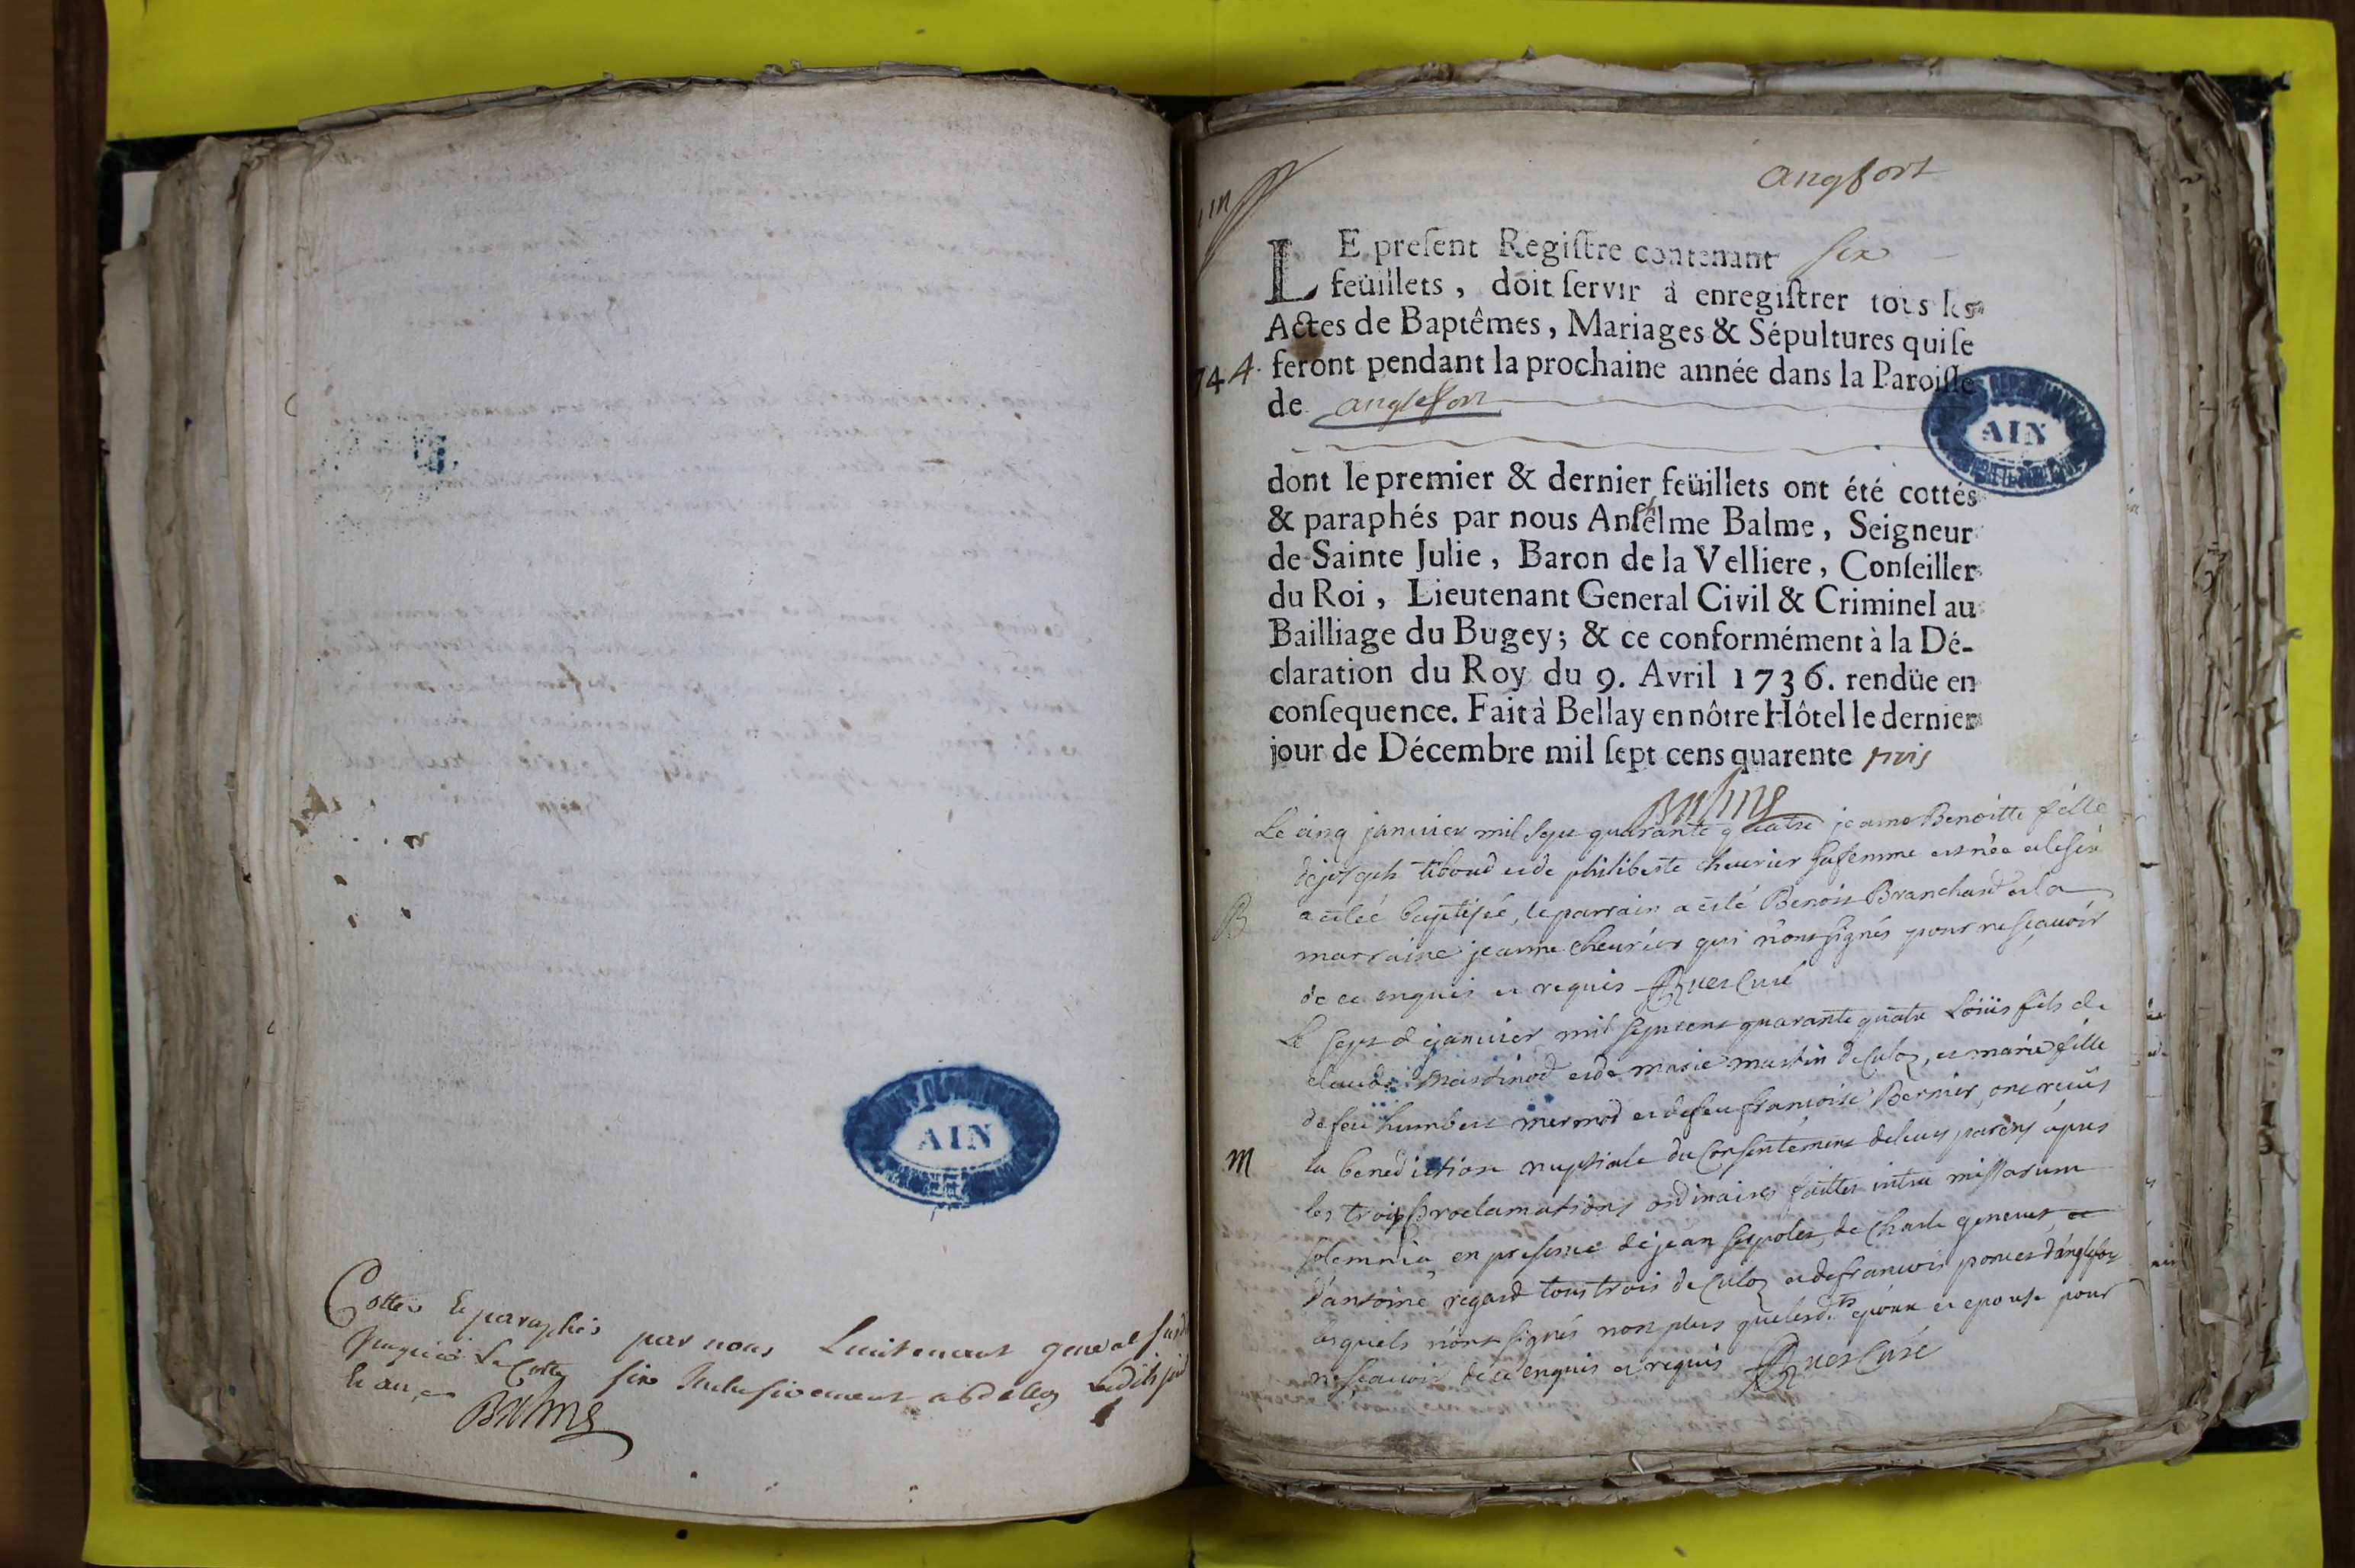 Cottés & paraphés par nous Lieutenant general
Jusqu'à La Cotte six Inclusivement
Balme
AIN
angfort
LE present Registre contenant six
feüillets, doit servir à enregistrer tous les
Actes de Baptêmes, Mariages & Sépultures qui se
744. feront pendant la prochaine année dans la Paroisse
de anglefort
AIN
dont le premier & dernier feüillets ont été cottés
& paraphés par nous Anthelme Balme, Seigneur
de Sainte Julie, Baron de la Velliere, Conseiller
du Roi, Lieutenant General Civil & Criminel au
Bailliage du Bugey; & ce conformément à la Dé-
claration du Roy du 9. Avril 1736. rendüe en
consequence. Fait à Bellay en nôtre Hôtel le dernier
jour de Décembre mil sept cens quarente trois
Balme
Le cinq janvier mil sept quarante quatre jeanne Benoitte fille
de joseph tiboud et de philiberte cheurier sa femme est née et
B a esté baptisée, le parrain a esté Benoit Branchard et la
marraine jeanne cheurier qui n'ont signés pour ne sçauoir
de ce enquis et requis Curé
Le sept de januier mil sept cent quarante quatre Loüis fils de
claude Martinod et de marie martin de Culoz, et marie fille
de feu humbert mermod et de feu françoise Bernier, ont reçus
M la benediction nuptiale du Consentement de leurs parens apres
les trois proclamations ordinaires faittes intra missarum
solemnia, en presence de jean serpolet, de Charle geneuet et
d'antoine regard tous trois de Culoz et de francois poncet d'anglefort
lesquels n'ont signés non plus que lesd.ts époux et epouse pour
ne sçauoir de ce enquis et requis Curé